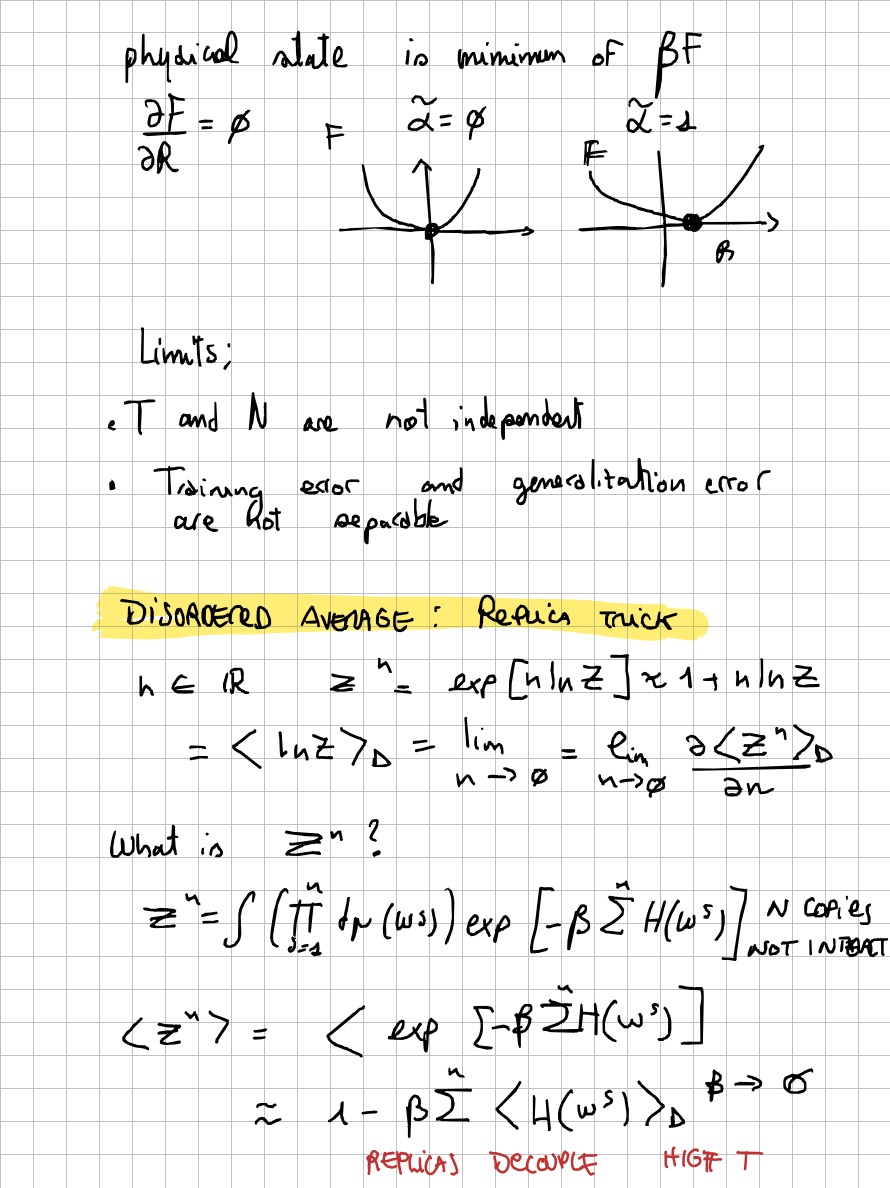 physical state is mimimum of βF
∂F/∂R = ∅ F α̃ = ∅ α̃ = 1
F
R
Limits;
• T and N are not independent
• Training error and generalitation error
are not separable
DISORDERED AVERAGE : REPLICA TRICK
n ∈ ℝ Z^n = exp[n ln Z] ≈ 1 + n ln Z
= < ln Z >_D = lim_{n→∅} = lim_{n→∅} ∂<Z^n>_D / ∂n
What is Z^n ?
Z^n = ∫ (∏_{s=1}^n dμ(w^s)) exp [-β Σ^n H(w^s)] N COPIES
NOT INTERACT
<Z^n> = < exp [-β Σ^n H(w^s)]
≈ 1 - β Σ^n <H(w^s)>_D β → 0
REPLICAS DECOUPLE HIGH T